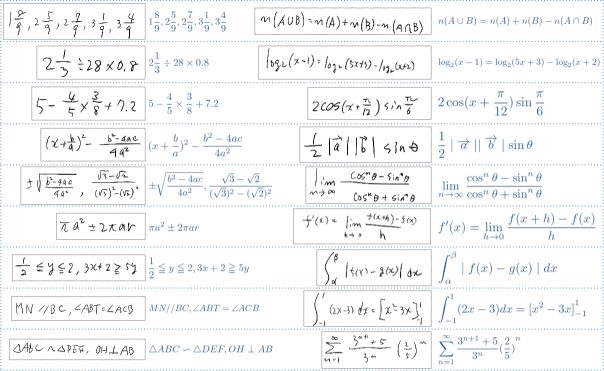 1 8/9, 2 5/9, 2 7/9, 3 1/9, 3 4/9 1 8/9, 2 5/9, 2 7/9, 3 1/9, 3 4/9 n(A∪B)=n(A)+n(B)-n(A∩B) n(A ∪ B) = n(A) + n(B) − n(A ∩ B)
2 1/3 ÷28×0.8 2 1/3 ÷ 28 × 0.8 log₂(x-1)=log₂(5x+3)-log₂(x+2) log₂(x − 1) = log₂(5x + 3) − log₂(x + 2)
5-4/5×3/8+7.2 5 − 4/5 × 3/8 + 7.2 2cos(x+π/12)sin π/6 2 cos(x + π/12) sin π/6
(x+b/a)²-(b²-4ac)/4a² (x + b/a)² − (b² − 4ac)/4a² 1/2|a⃗||b⃗|sinθ 1/2 | a⃗ || b⃗ | sin θ
±√((b²-4ac)/4a²), (√3-√2)/((√3)²-(√2)²) ±√((b² − 4ac)/4a²), (√3 − √2)/((√3)² − (√2)²) lim n→∞ (cosⁿθ-sinⁿθ)/(cosⁿθ+sinⁿθ) lim n→∞ (cosⁿ θ − sinⁿ θ)/(cosⁿ θ + sinⁿ θ)
πa²±2πar πa² ± 2πar f'(x)=lim h→0 (f(x+h)-f(x))/h f′(x) = lim h→0 (f(x + h) − f(x))/h
1/2≦y≦2, 3x+2≧5y 1/2 ≦ y ≦ 2, 3x + 2 ≧ 5y ∫_α^β |f(x)-g(x)|dx ∫_α^β | f(x) − g(x) | dx
MN//BC, ∠ABT=∠ACB MN//BC, ∠ABT = ∠ACB ∫_-1^1 (2x-3)dx=[x²-3x]_-1^1 ∫_-1^1 (2x − 3)dx = [x² − 3x]_-1^1
△ABC∽△DEF, OH⊥AB △ABC ∽ △DEF, OH ⊥ AB ∑_n=1^∞ (3ⁿ⁺¹+5)/3ⁿ (2/5)ⁿ ∑_n=1^∞ (3ⁿ⁺¹ + 5)/3ⁿ (2/5)ⁿ